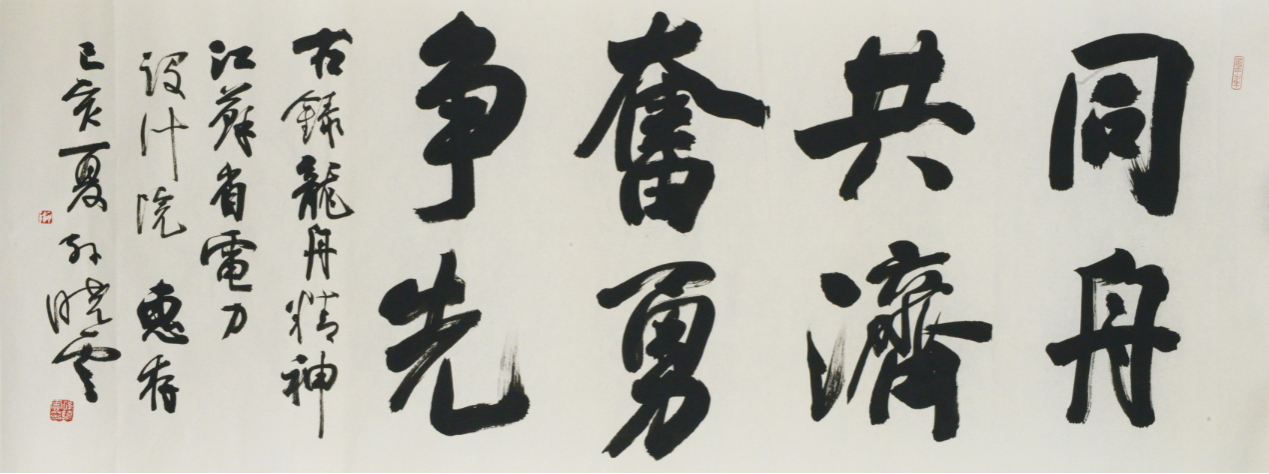 同舟
共濟
奮勇
争先
右録龍舟精神
江蘇省電力
設计院 惠存
己亥夏 孙晓雲